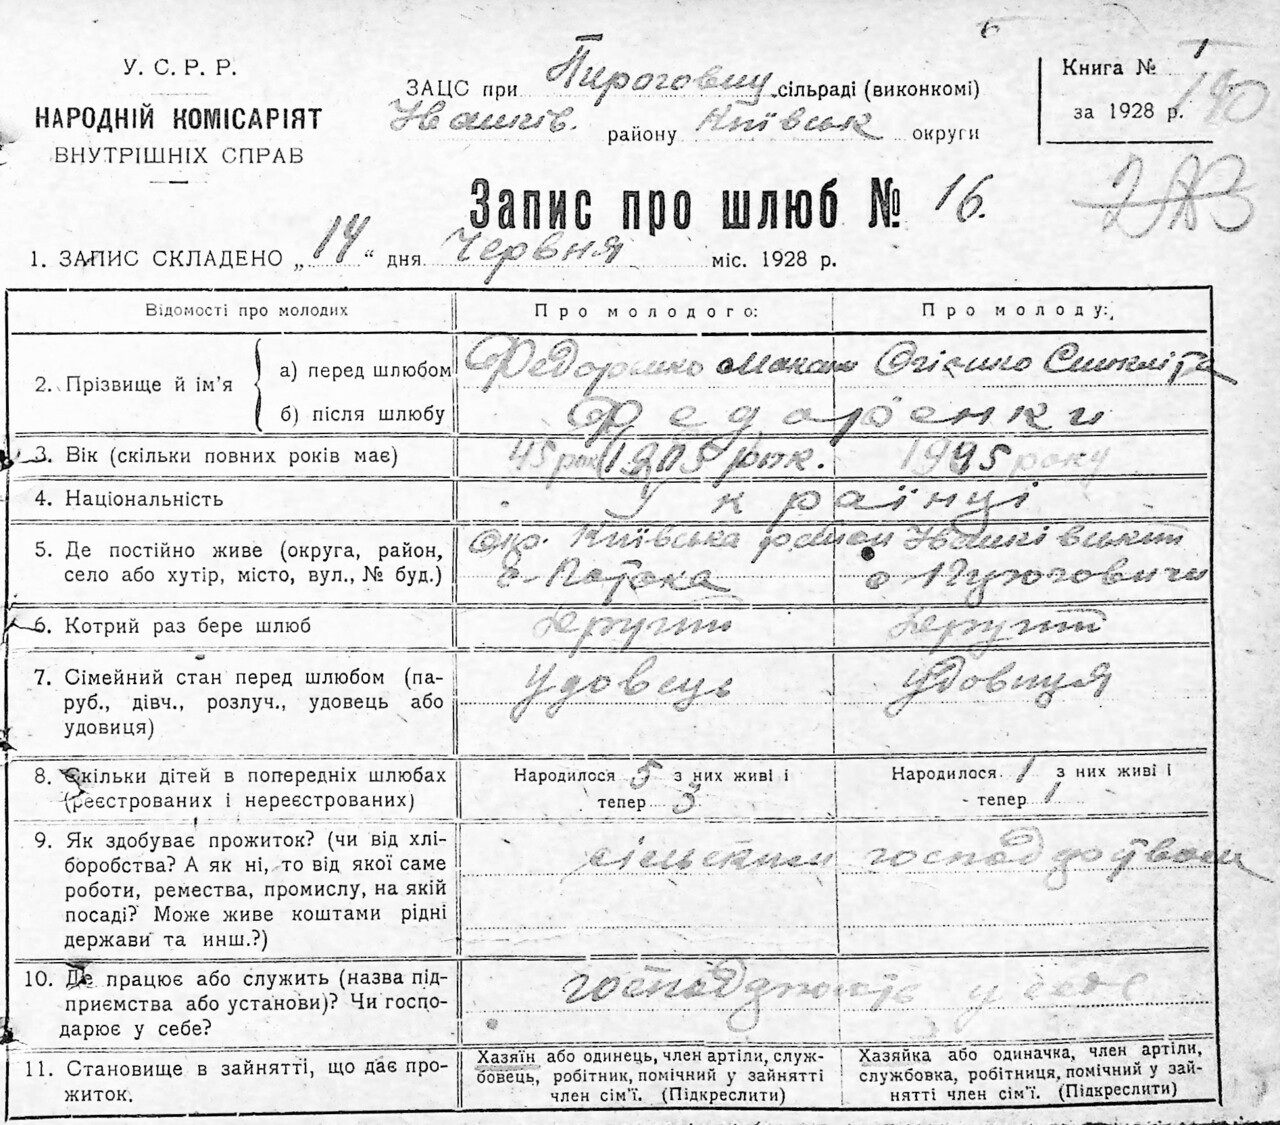 У. С. Р. Р.
НАРОДНІЙ КОМІСАРІЯТ
ВНУТРІШНІХ СПРАВ
ЗАЦС при Пироговец сільраді (виконкомі)
Івашків. району Київськ округи
Книга № 1
за 1928 р.
190
Запис про шлюб № 16.
1. ЗАПИС СКЛАДЕНО „14“ дня Червня міс. 1928 р.
Відомості про молодих
Про молодого:
Про молоду:
2. Прізвище й ім'я
а) перед шлюбом
б) після шлюбу
Макам
Федоренки
3. Вік (скільки повних років має)
45 рок 1905 рок.
1995 року
4. Національність
Українці
5. Де постійно живе (округа, район,
село або хутір, місто, вул., № буд.)
Окр. Київська район Івашківський
с. Потока
с.
6. Котрий раз бере шлюб
Другий
Другий
7. Сімейний стан перед шлюбом (па-
руб., дівч., розлуч., удовець або
удовиця)
Удовець
удовиця
8. Скільки дітей в попередніх шлюбах
(реєстрованих і нереєстрованих)
Народилося 5 з них живі і
тепер 3
Народилося 1 з них живі і
тепер 1
9. Як здобуває прожиток? (чи від хлі-
боробства? А як ні, то від якої саме
роботи, ремества, промислу, на якій
посаді? Може живе коштами рідні
держави та инш.?)
сільским господарством
10. Де працює або служить (назва під-
приємства або установи)? Чи госпо-
дарює у себе?
у себе
11. Становище в зайнятті, що дає про-
житок.
Хазяїн або одинець, член артіли, служ-
бовець, робітник, помічний у зайнятті
член сім'ї. (Підкреслити)
Хазяйка або одиначка, член артіли,
службовка, робітниця, помічна у зай-
нятті член сім'ї. (Підкреслити)